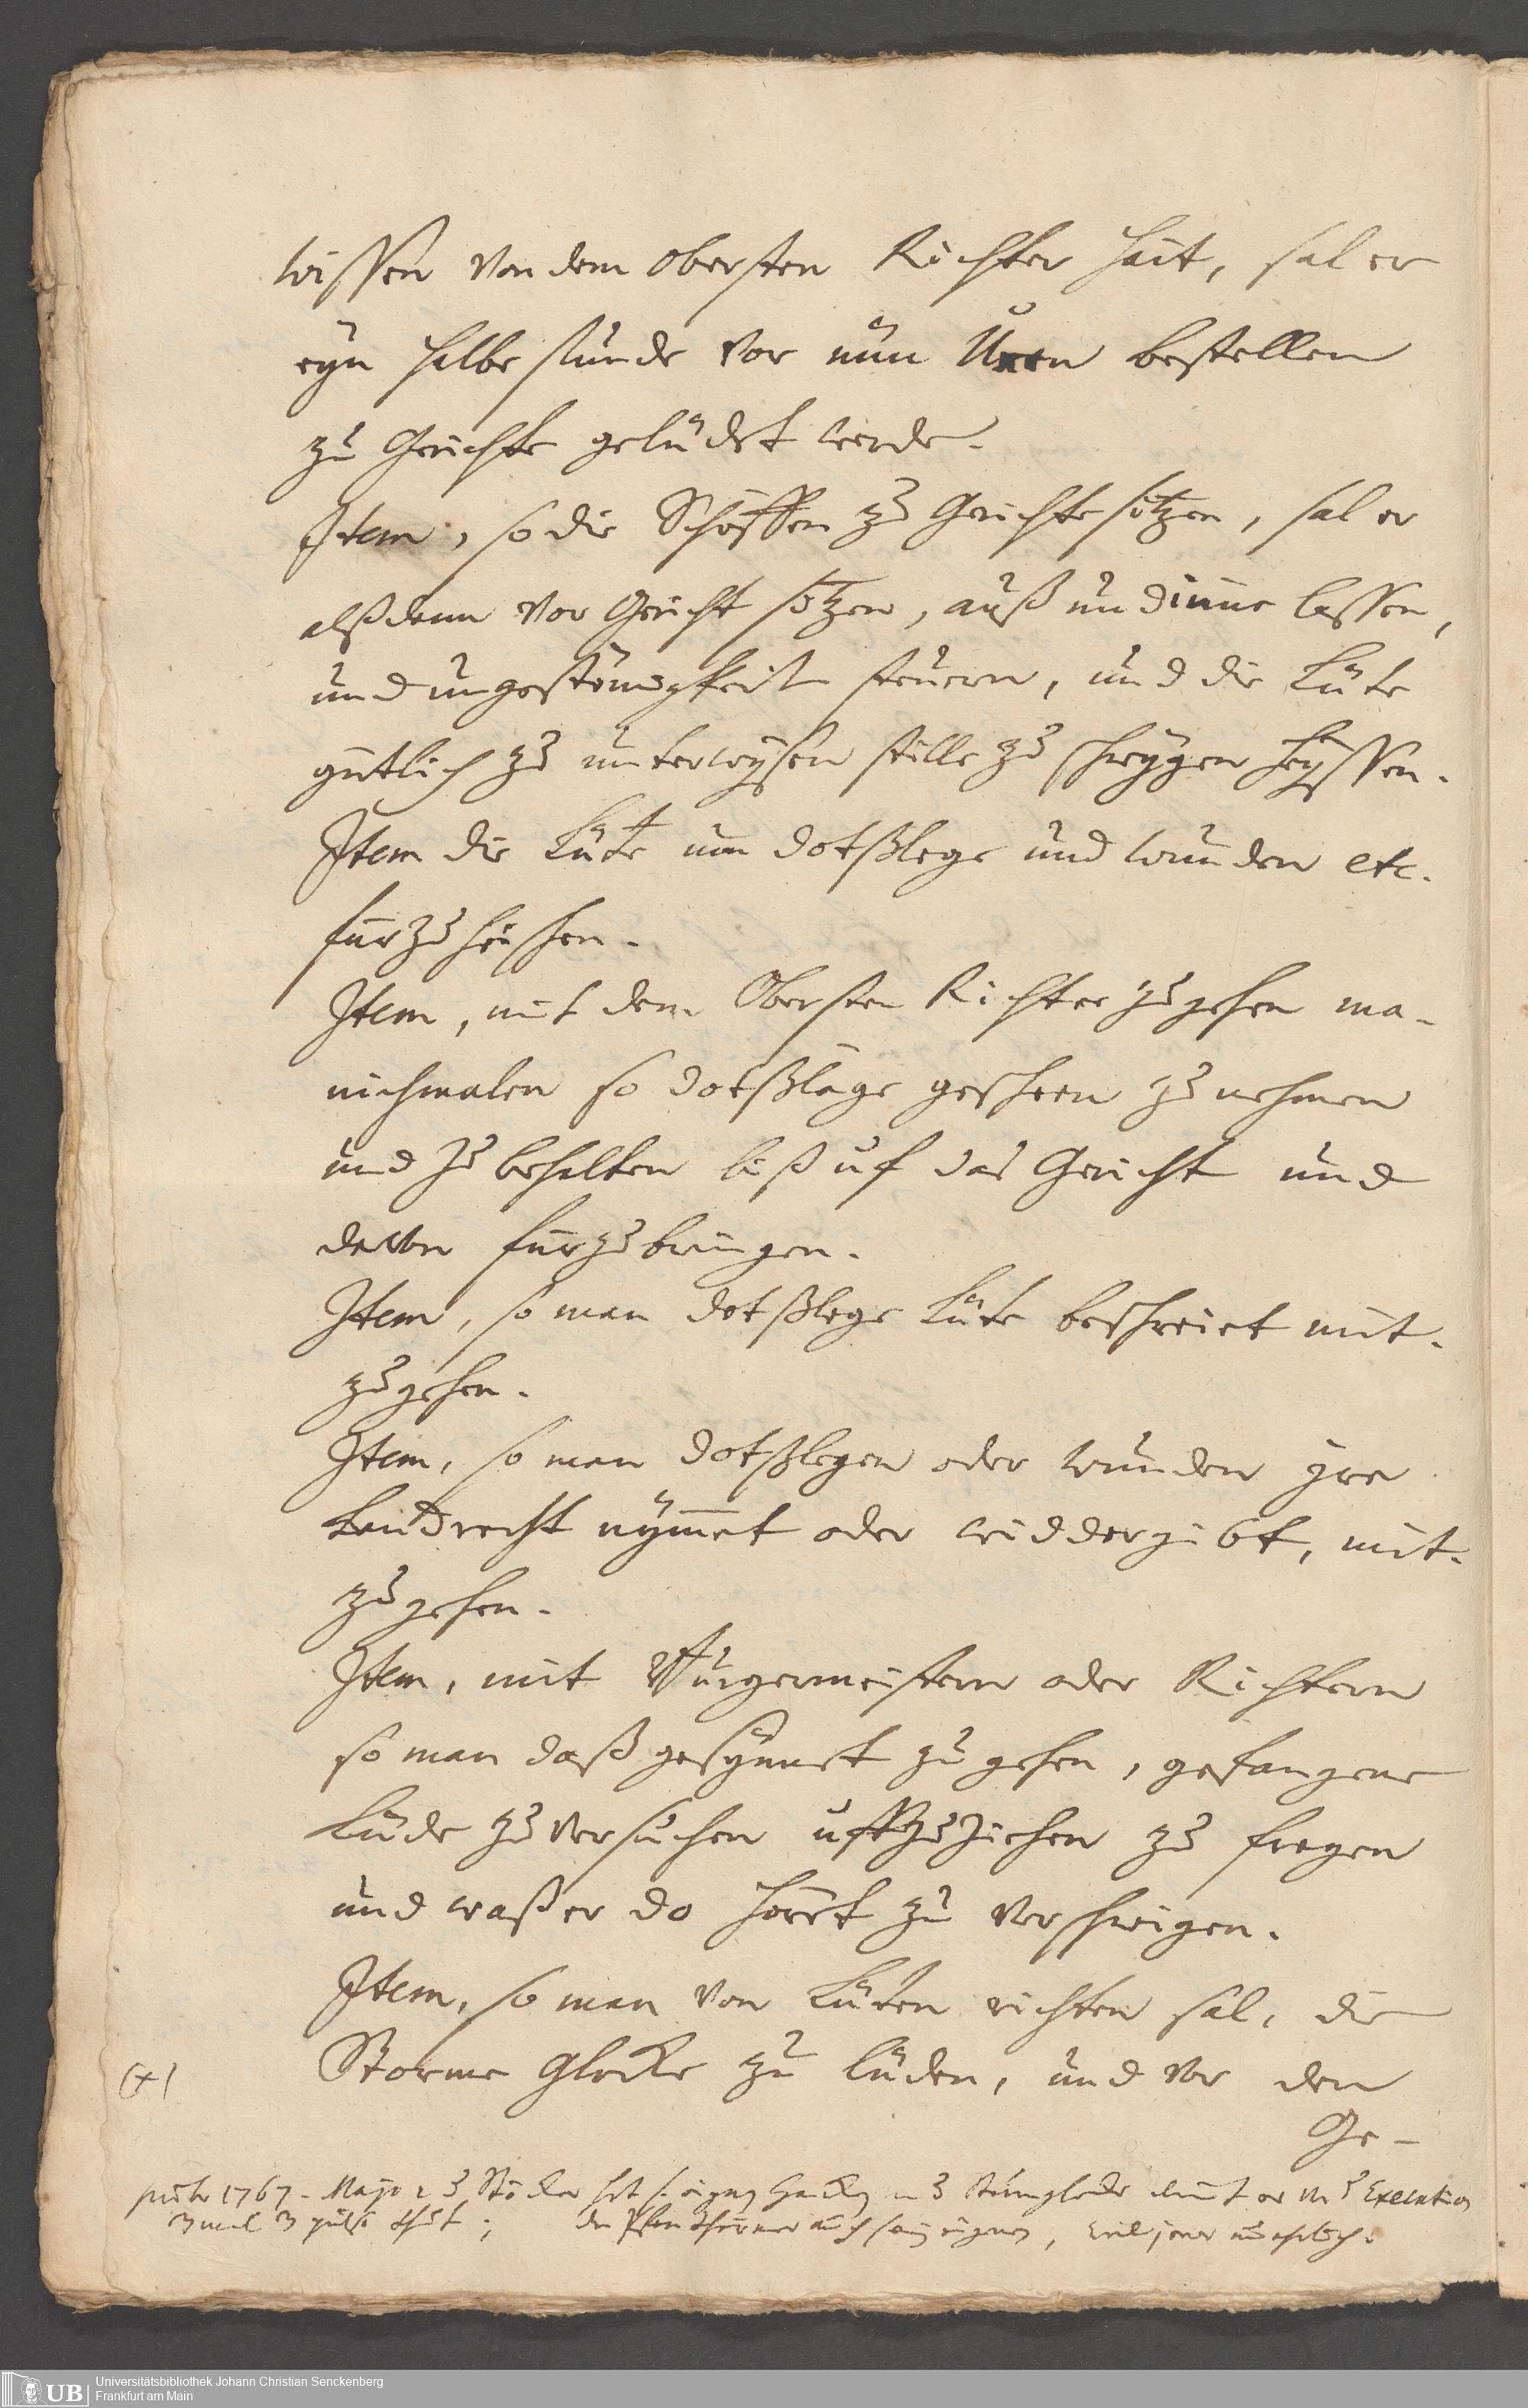 wissen von dem obersten Richter hait, sal er
eyn halbe stunde vor nün Uren bestellen
zu Gerichte gelüdet werde.
Item, so die Schöffen zu Gerichte sitzen, sal er
alßdann vor Gericht sitzen, auß und inne lassen,
und ungestömigkeit steuern, und die Lüte
gütlich zu unterwysen stille zu schwygen heyssen.
Item die Lüte um dotßlege und wunden etc.
fürzuheischen.
Item, mit dem Obersten Richter zu gehen ma-
nichmalen so dotßläge gescheen zu nehmen
und zu behalten biß uf das Gericht und
davon fürzubringen.
Item, so man dotßlege Lüte beschreiet mit-
zugehen.
Item, so man dotßlegen oder wunden ire
Landrecht nymmet oder widdergibt, mit-
zugehen.
Item, mit Burgermeistern oder Richtern
so man daß gesynnet zu gehen, gefangene
Lüde zu versuchen uffzuziehen zu fragen
und waß er do horet zu verschwigen.
Item, so man von Lüten richten sal, die
Storme Glocke zu lüden, und vor den
Ge-
(+)
1767. Major Stöcker hat Execution
3 mal 3 thut;